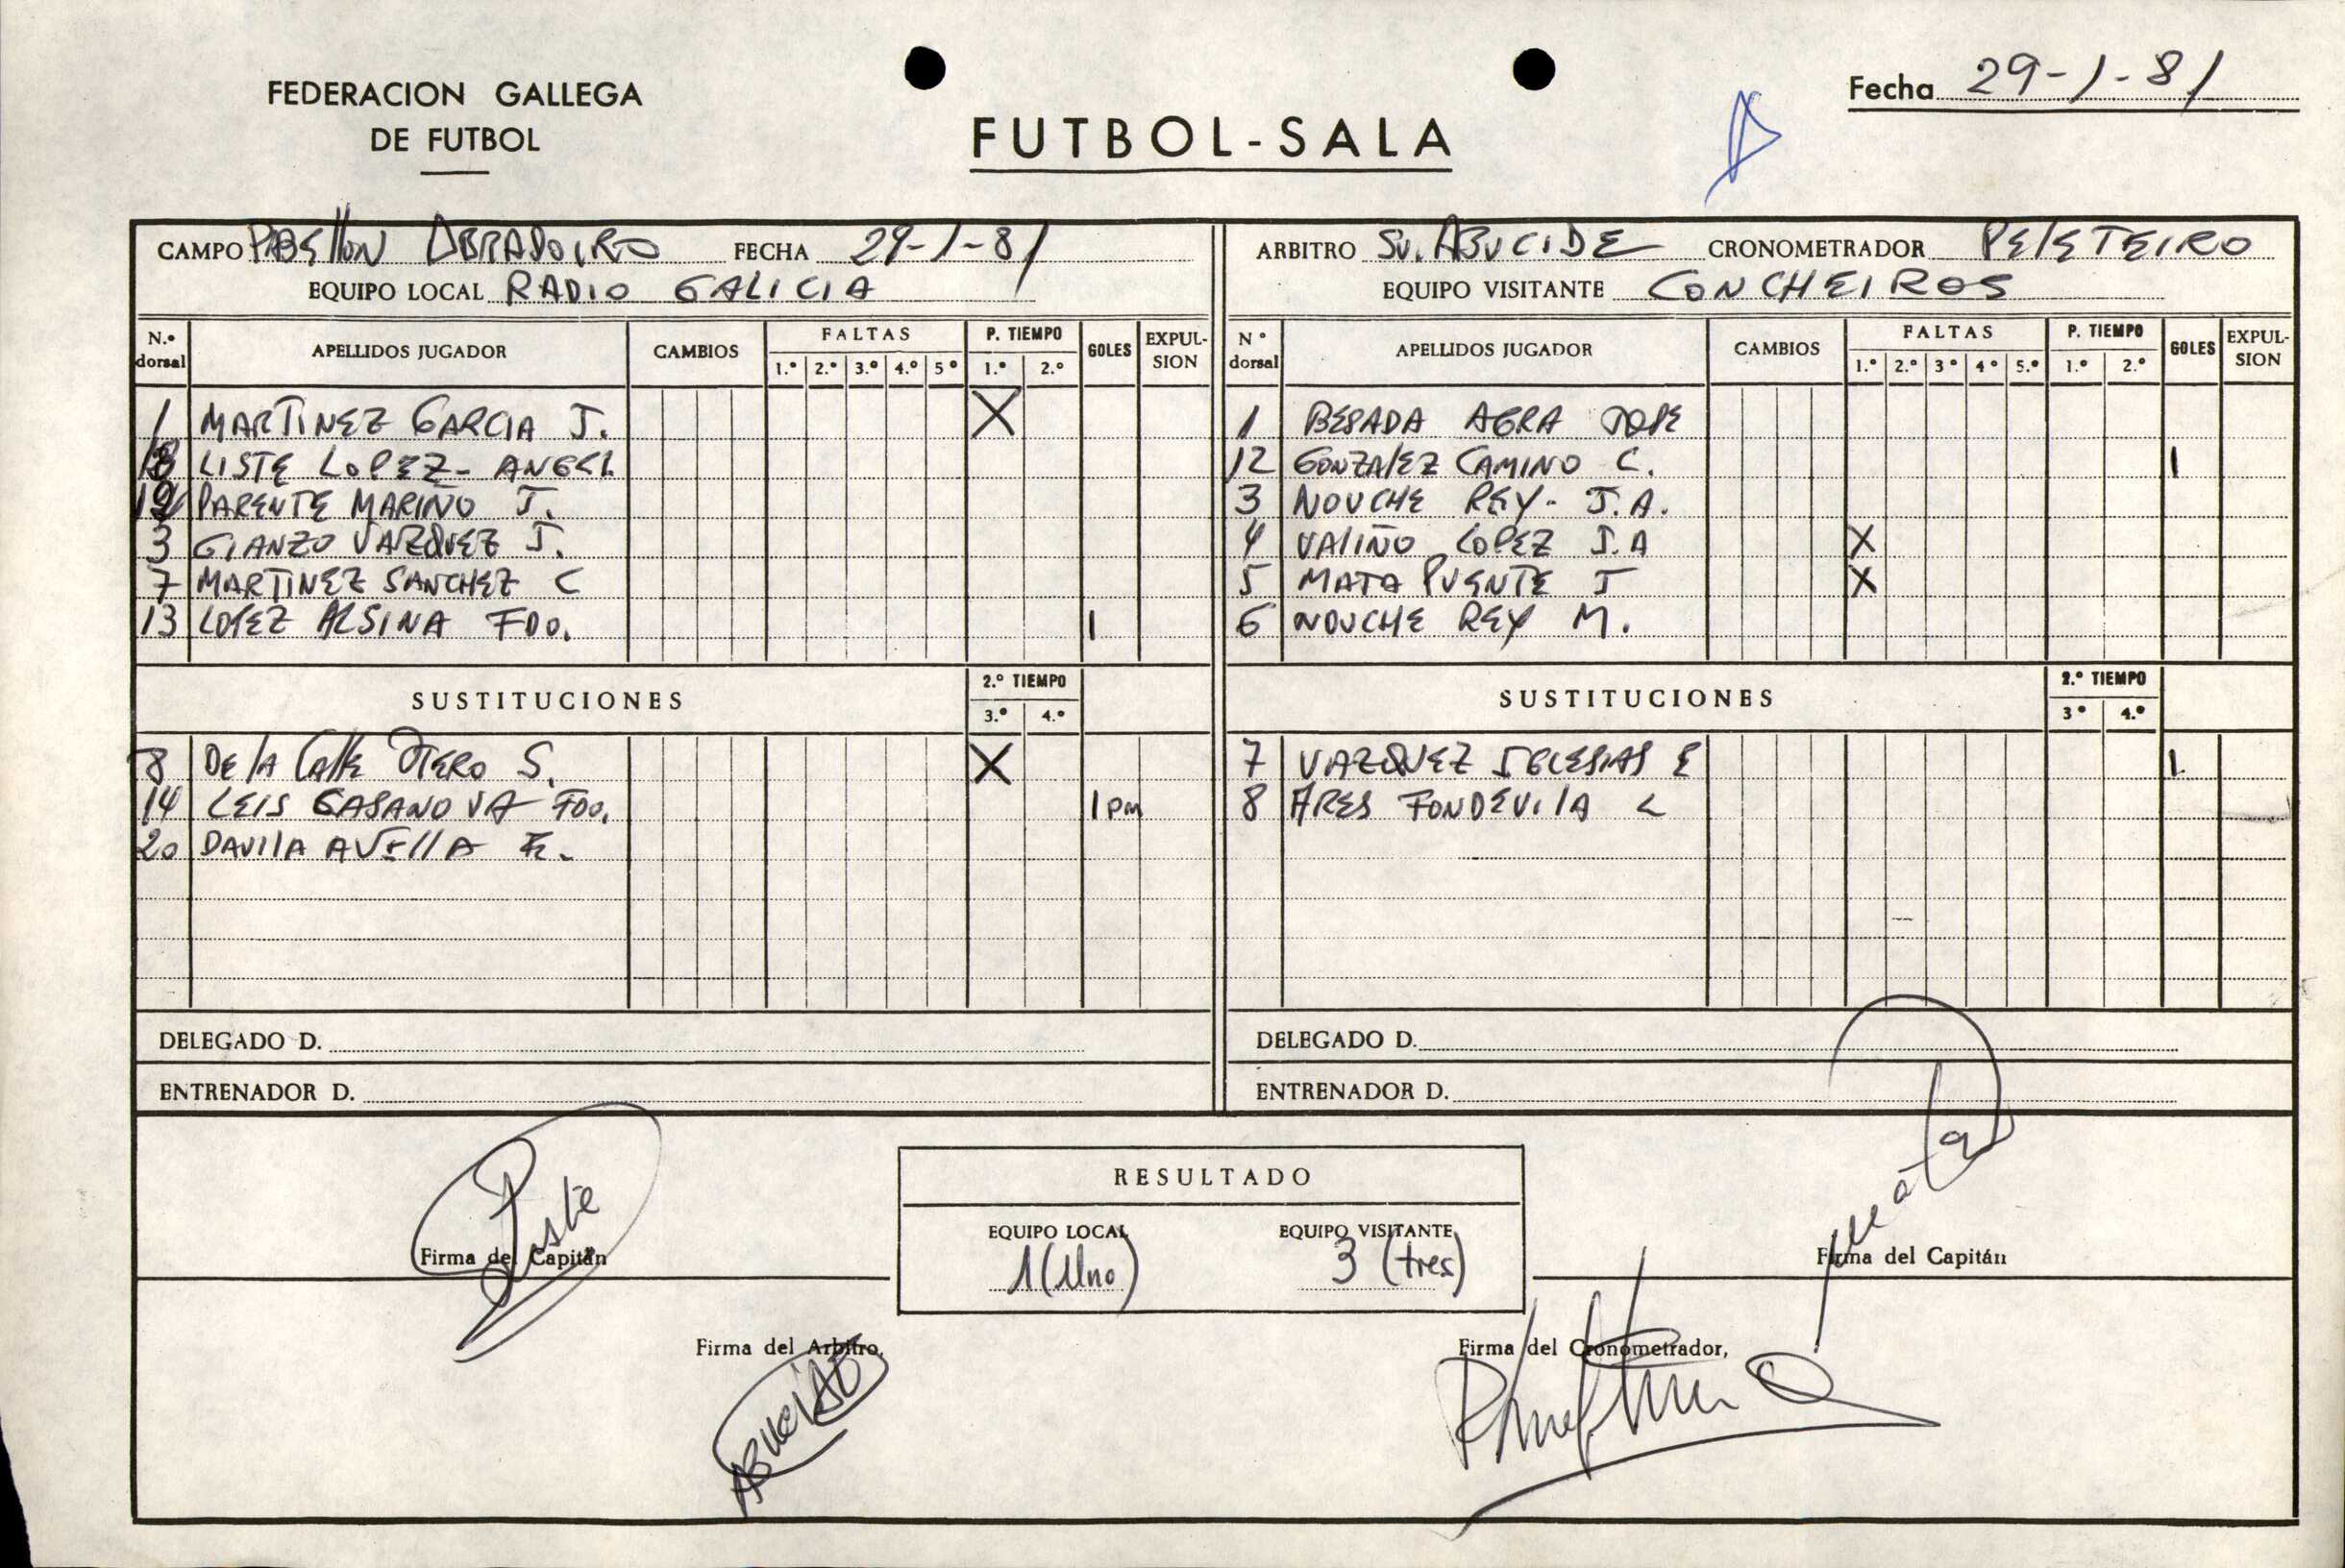 FEDERACION GALLEGA
DE FUTBOL
FUTBOL-SALA
Fecha 29-1-81
CAMPO PABELLON OBRADOIRO FECHA 29-1-81
EQUIPO LOCAL RADIO GALICIA
N.º dorsal APELLIDOS JUGADOR CAMBIOS FALTAS 1.º 2.º 3.º 4.º 5º P. TIEMPO 1.º 2.º GOLES EXPULSION
1 MARTINEZ GARCIA J. X
LISTE LOPEZ- ANGEL
PARENTE MARIÑO J.
3 GIANZO VAZQUEZ J.
7 MARTINEZ SANCHEZ C
13 LOPEZ ALSINA FDO. 1
SUSTITUCIONES 2.º TIEMPO 3.º 4.º
8 DE LA CALLE OTERO S. X
14 LEIS CASANOVA FDO. 1 pm
20 DAVILA AVELLA F.
DELEGADO D.
ENTRENADOR D.
ARBITRO Sr. ABUCIDE CRONOMETRADOR PELETEIRO
EQUIPO VISITANTE CONCHEIROS
N º dorsal APELLIDOS JUGADOR CAMBIOS FALTAS 1.º 2.º 3º 4º 5.º P. TIEMPO 1.º 2.º GOLES EXPULSION
1 BESADA AGRA JOSE
12 GONZALEZ CAMINO C. 1
3 NOUCHE REY- J.A.
4 VALIÑO LOPEZ J.A X
5 MATA PUENTE J X
6 NOUCHE REY M.
SUSTITUCIONES 2.º TIEMPO 3º 4.º
7 VAZQUEZ IGLESIAS E 1
8 ARES FONDEVILA L
DELEGADO D.
ENTRENADOR D.
RESULTADO
EQUIPO LOCAL EQUIPO VISITANTE
1 (Uno) 3 (tres)
Liste
Firma del Capitán
Mata
Firma del Capitán
Firma del Arbitro,
ABUCIDE
Firma del Cronometrador,